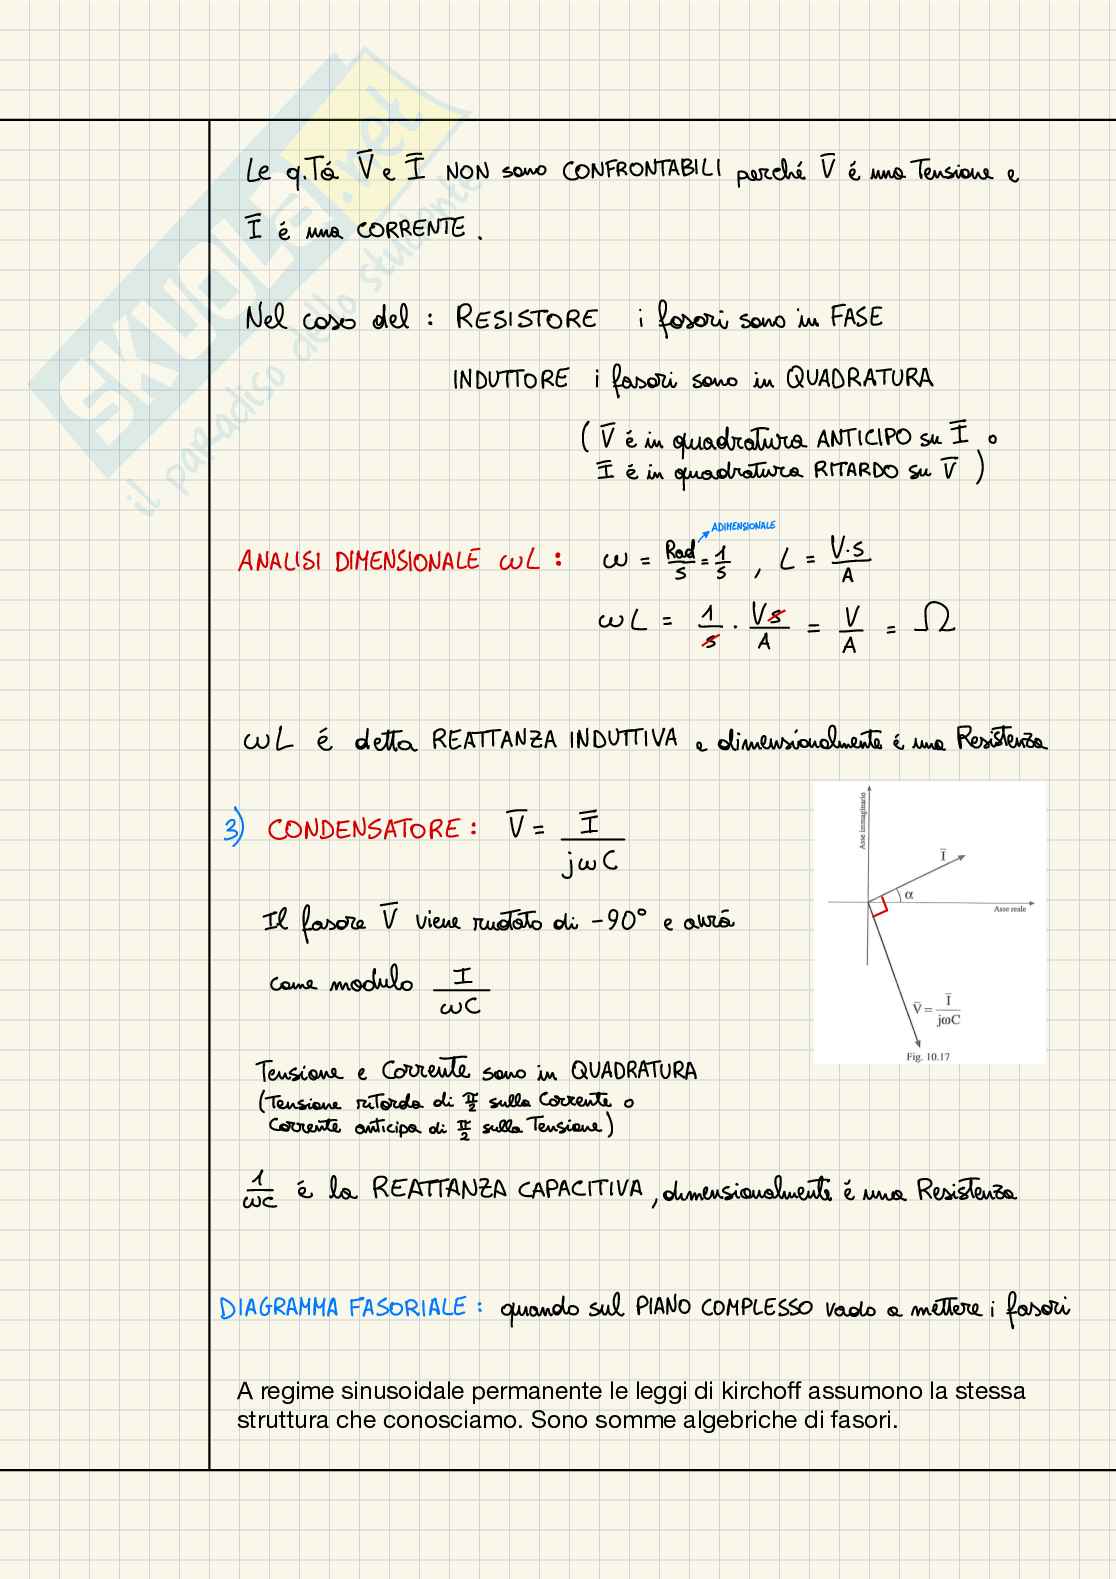 SKUOLA.net
il paradiso dello studente
Le q.Tá V̅ e I̅ NON sono CONFRONTABILI perché V̅ é una Tensione e
I̅ é una CORRENTE .
Nel caso del : RESISTORE i fasori sono in FASE
INDUTTORE i fasori sono in QUADRATURA
( V̅ é in quadratura ANTICIPO su I̅ o
I̅ é in quadratura RITARDO su V̅ )
ADIMENSIONALE
ANALISI DIMENSIONALE ωL : ω = Rad/s = 1/s , L = V·s/A
ωL = 1/s · Vs/A = V/A = Ω
ωL é detta REATTANZA INDUTTIVA e dimensionalmente é una Resistenza
3) CONDENSATORE : V̅ = I̅/jωC
Il fasore V̅ viene ruotato di -90° e avrá
come modulo I/ωC
Asse immaginario
I̅
α
Asse reale
V̅ = I̅/jωC
Fig. 10.17
Tensione e Corrente sono in QUADRATURA
(Tensione ritarda di π/2 sulla Corrente o
Corrente anticipa di π/2 sulla Tensione)
1/ωC é la REATTANZA CAPACITIVA , dimensionalmente é una Resistenza
DIAGRAMMA FASORIALE : quando sul PIANO COMPLESSO vado a mettere i fasori
A regime sinusoidale permanente le leggi di kirchoff assumono la stessa
struttura che conosciamo. Sono somme algebriche di fasori.